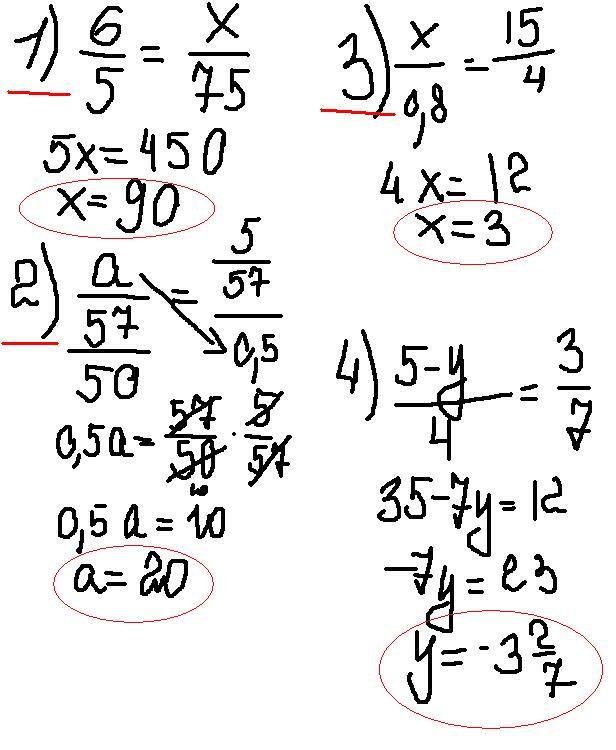 1) 6/5 = x/75
5x=450
x=90
2) a/(57/50) = (5/57)/0,5
0,5a = 57/50 · 5/57
10
0,5 a = 10
a=20
3) x/0,8 = 15/4
4x=12
x=3
4) (5-y)/4 = 3/7
35-7y=12
-7y=23
y=-3 2/7